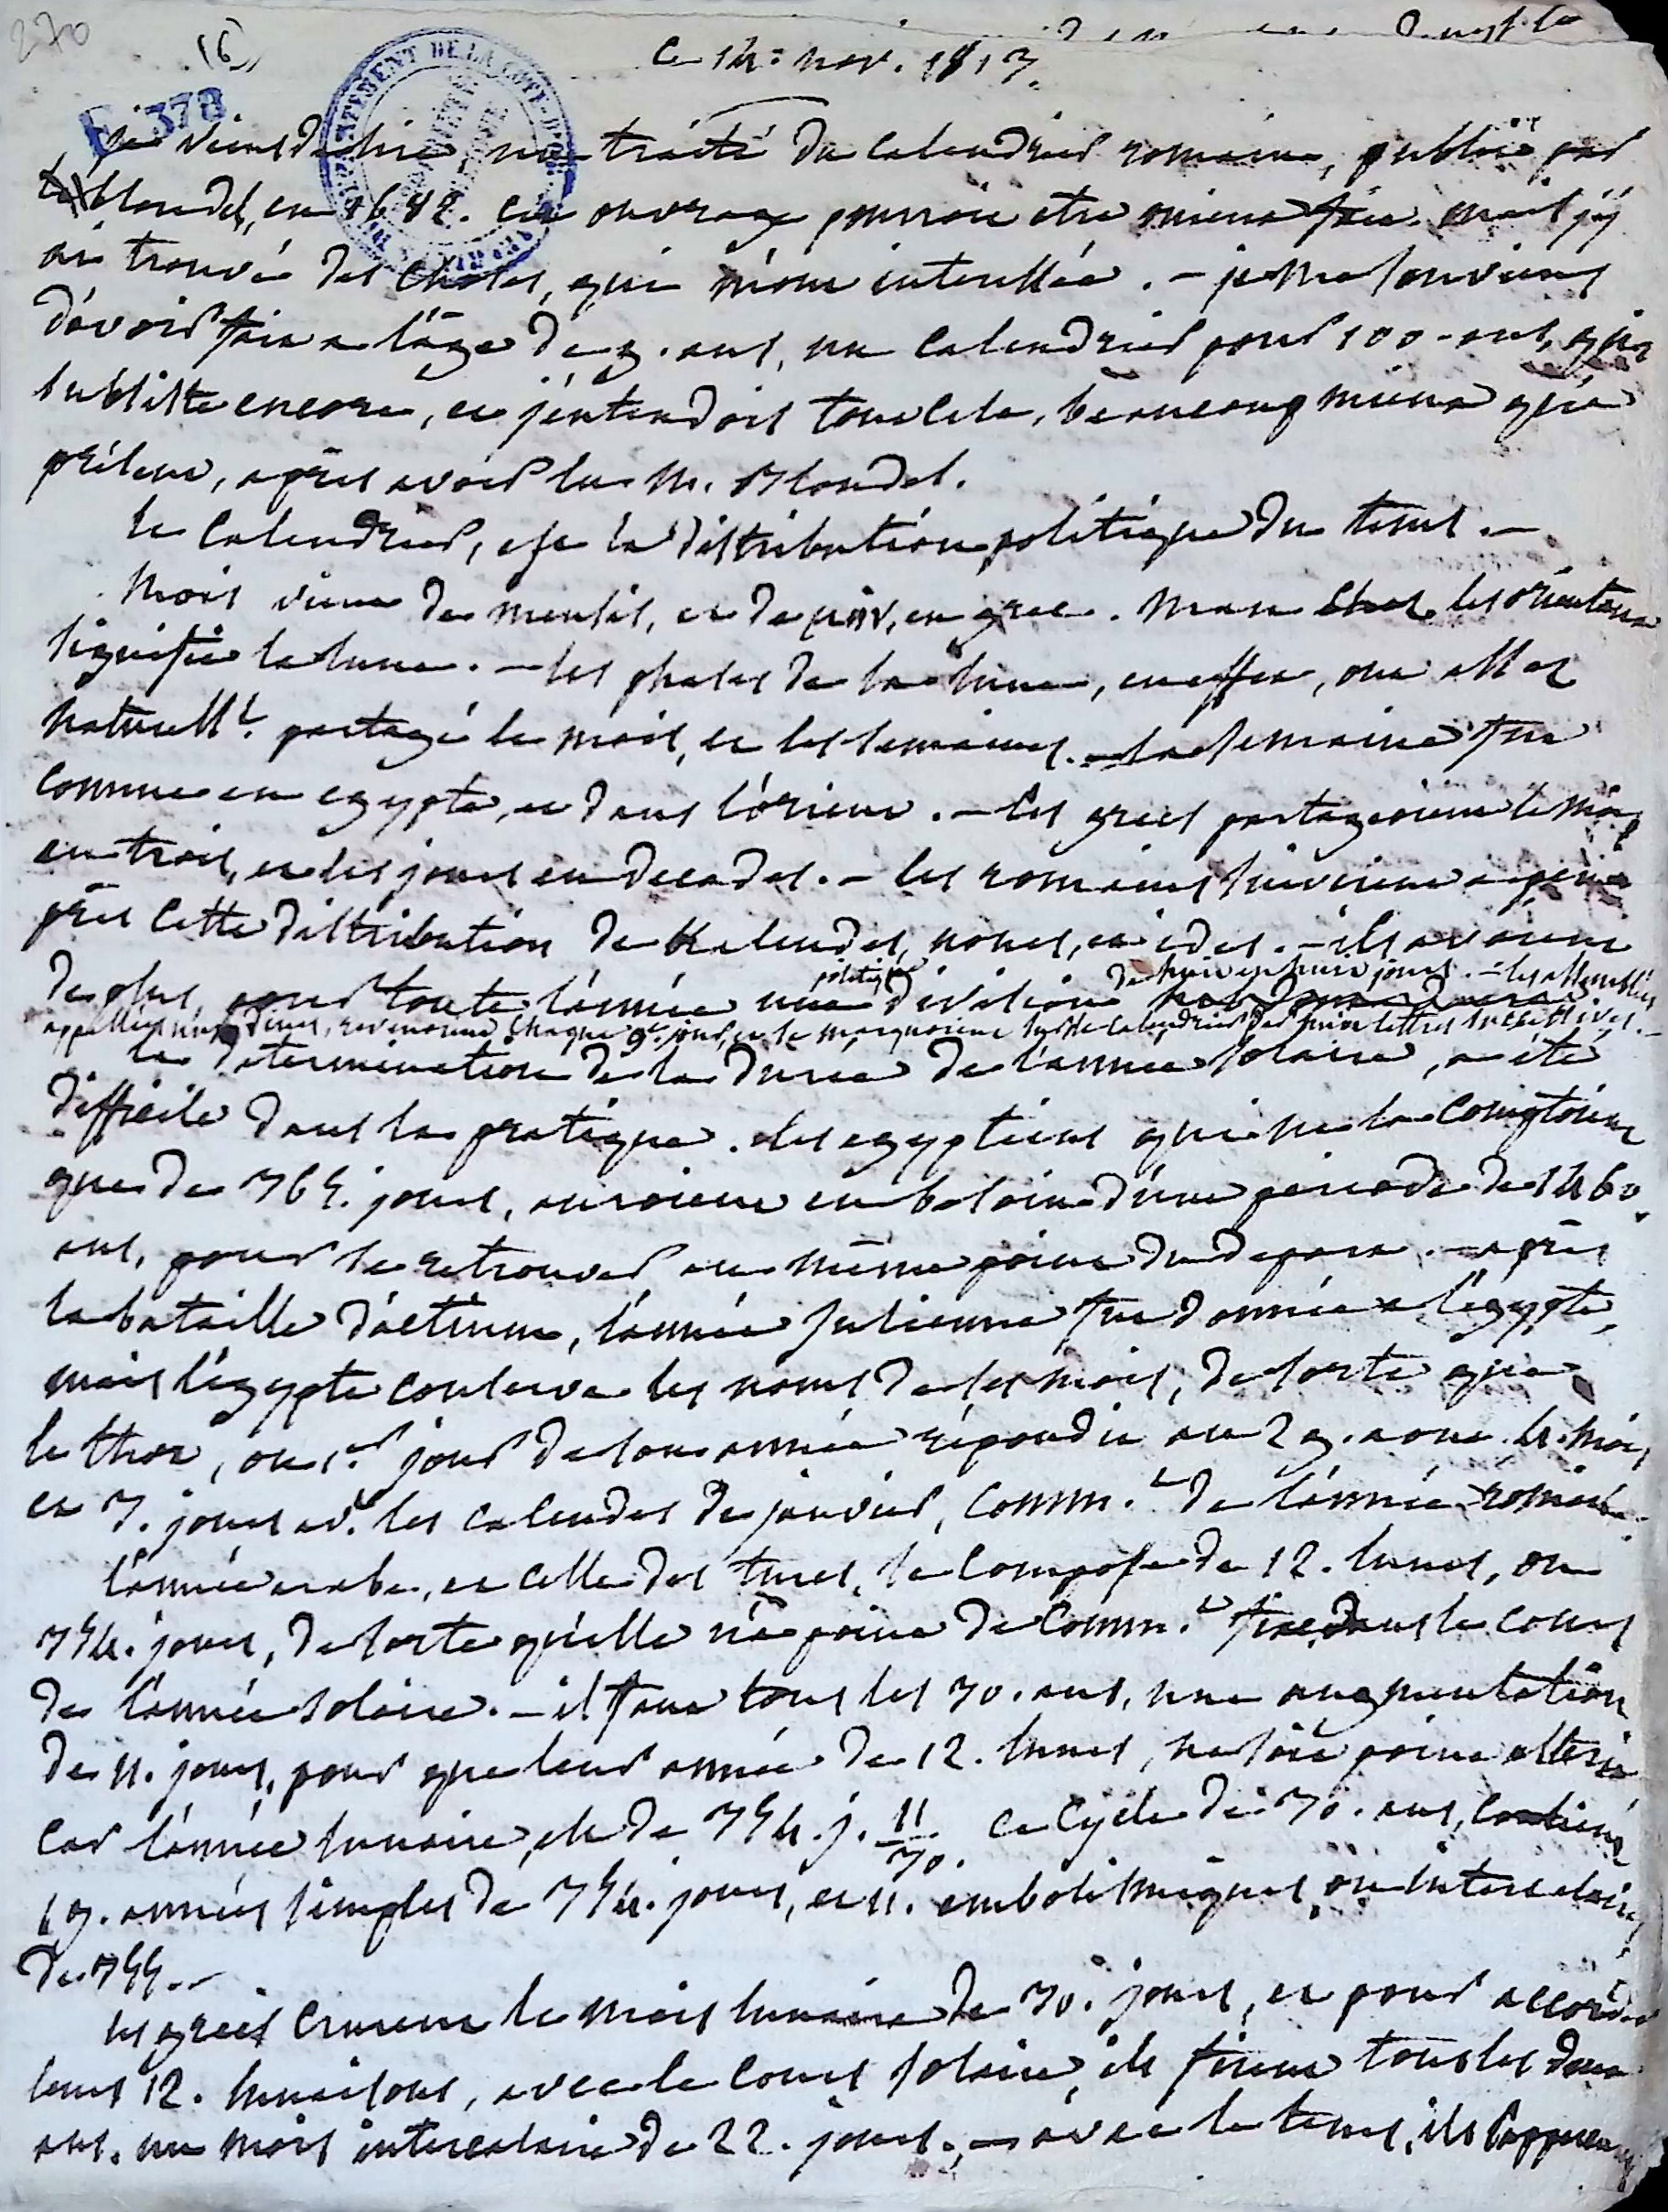 270
(6)
ce 14. nov. 1813.
E 378
DEPARTEMENT DE LA COTE-D'OR
je viens de lire, un traité du calendrier romain, publié par
blondel, en 1682. cet ouvrage pourroit etre mieux fait. mais j'y
ai trouvé des choses, qui m'ont interessée. - je me souviens
d'avoir fait a l'age de 9. ans, un calendrier pour 100 - ans, qui
subsiste encore, et j'entendois tout cela, beaucoup mieux qu'a
présent, après avoir lu M. Blondel.
le calendrier, est la distribution politique du tems. -
mois vient de mensis, et de μην, en grec. man chez les orientaux
signifie la lune. - les phases de la lune, en effet, ont assez
naturellt. partagé le mois, et les semaines. - la semaine fut
connue en egypte, et dans l'orient. - les grecs partageoient le mois
en trois, et les jours en decades. - les romains suivirent a peu
près cette distribution de Kalendes, nones, et ides. - ils avoient
de plus, pour toute l'année une division politique de huit en huit jours. - les assemblées
appellées nundines, revenoient chaque 9e. jour, et se marquoient sur le calendrier par huit lettres successives. -
la determination de la durée de l'année solaire, a été
difficile dans la pratique. les egyptiens qui ne la comptoient
que de 365. jours, auroient eu besoin d'une periode de 1460.
ans, pour se retrouver au même point du depart. - après
la bataille d'actium, l'année Julienne fut donnée a l'egypte,
mais l'egypte conserva les noms de ses mois, de sorte que
le thot, ou 1er. jour de son année répondit au 29. aout. 4. mois,
et 3. jours avt. les calendes de janvier, commt. de l'année romaine.
l'année arabe, et celle des turcs, se compose de 12. lunes, ou
354. jours, de sorte qu'elle n'a point de commt. fixe dans le cours
de l'année solaire. - il faut tous les 30. ans, une augmentation
de 11. jours, pour que leur année de 12. lunes, ne soit point alterée
car l'année lunaire, est de 354. j. 11/30. ce cycle de 30. ans, contient
19. années simples de 354. jours, et 11. embolismiques, ou intercalaires
de 355. -
les grecs crurent le mois lunaire de 30. jours, et pour accorder
leurs 12. lunaisons, avec le cours solaire, ils firent tous les deux
ans. un mois intercalaire de 22. jours. - avec le tems, ils s'apperçu